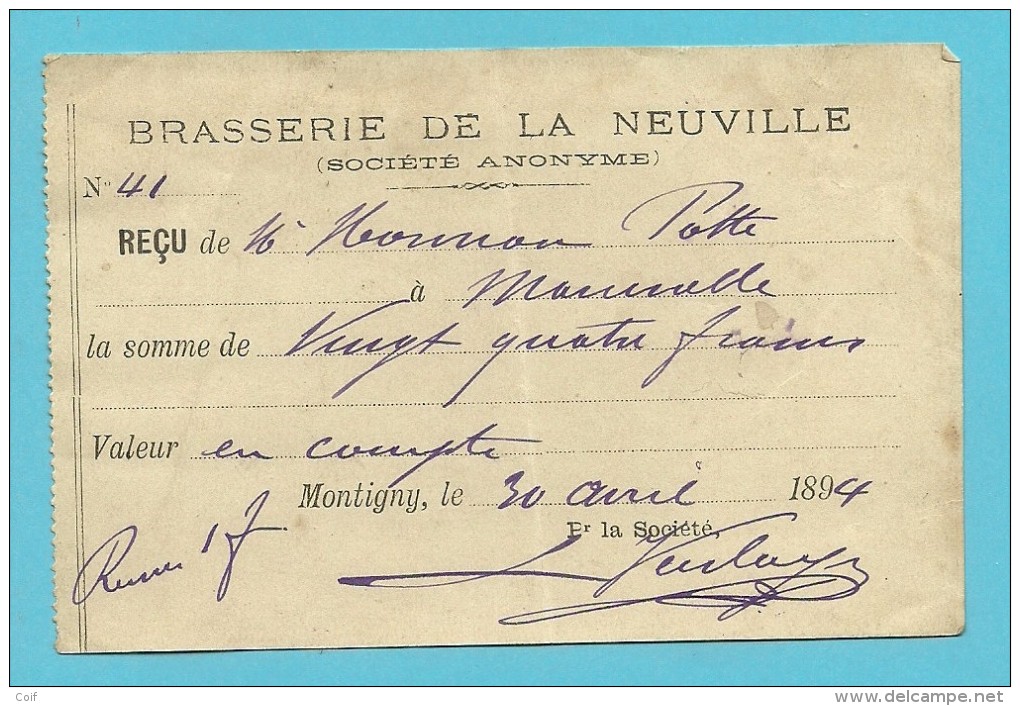 BRASSERIE DE LA NEUVILLE
(SOCIÉTÉ ANONYME)
No 41
REÇU de Mr Potte
à
la somme de Vingt quatre francs
Valeur en compte
Montigny, le 30 avril 1894
Pr la Société,
1 f
Coif
www.delcampe.net